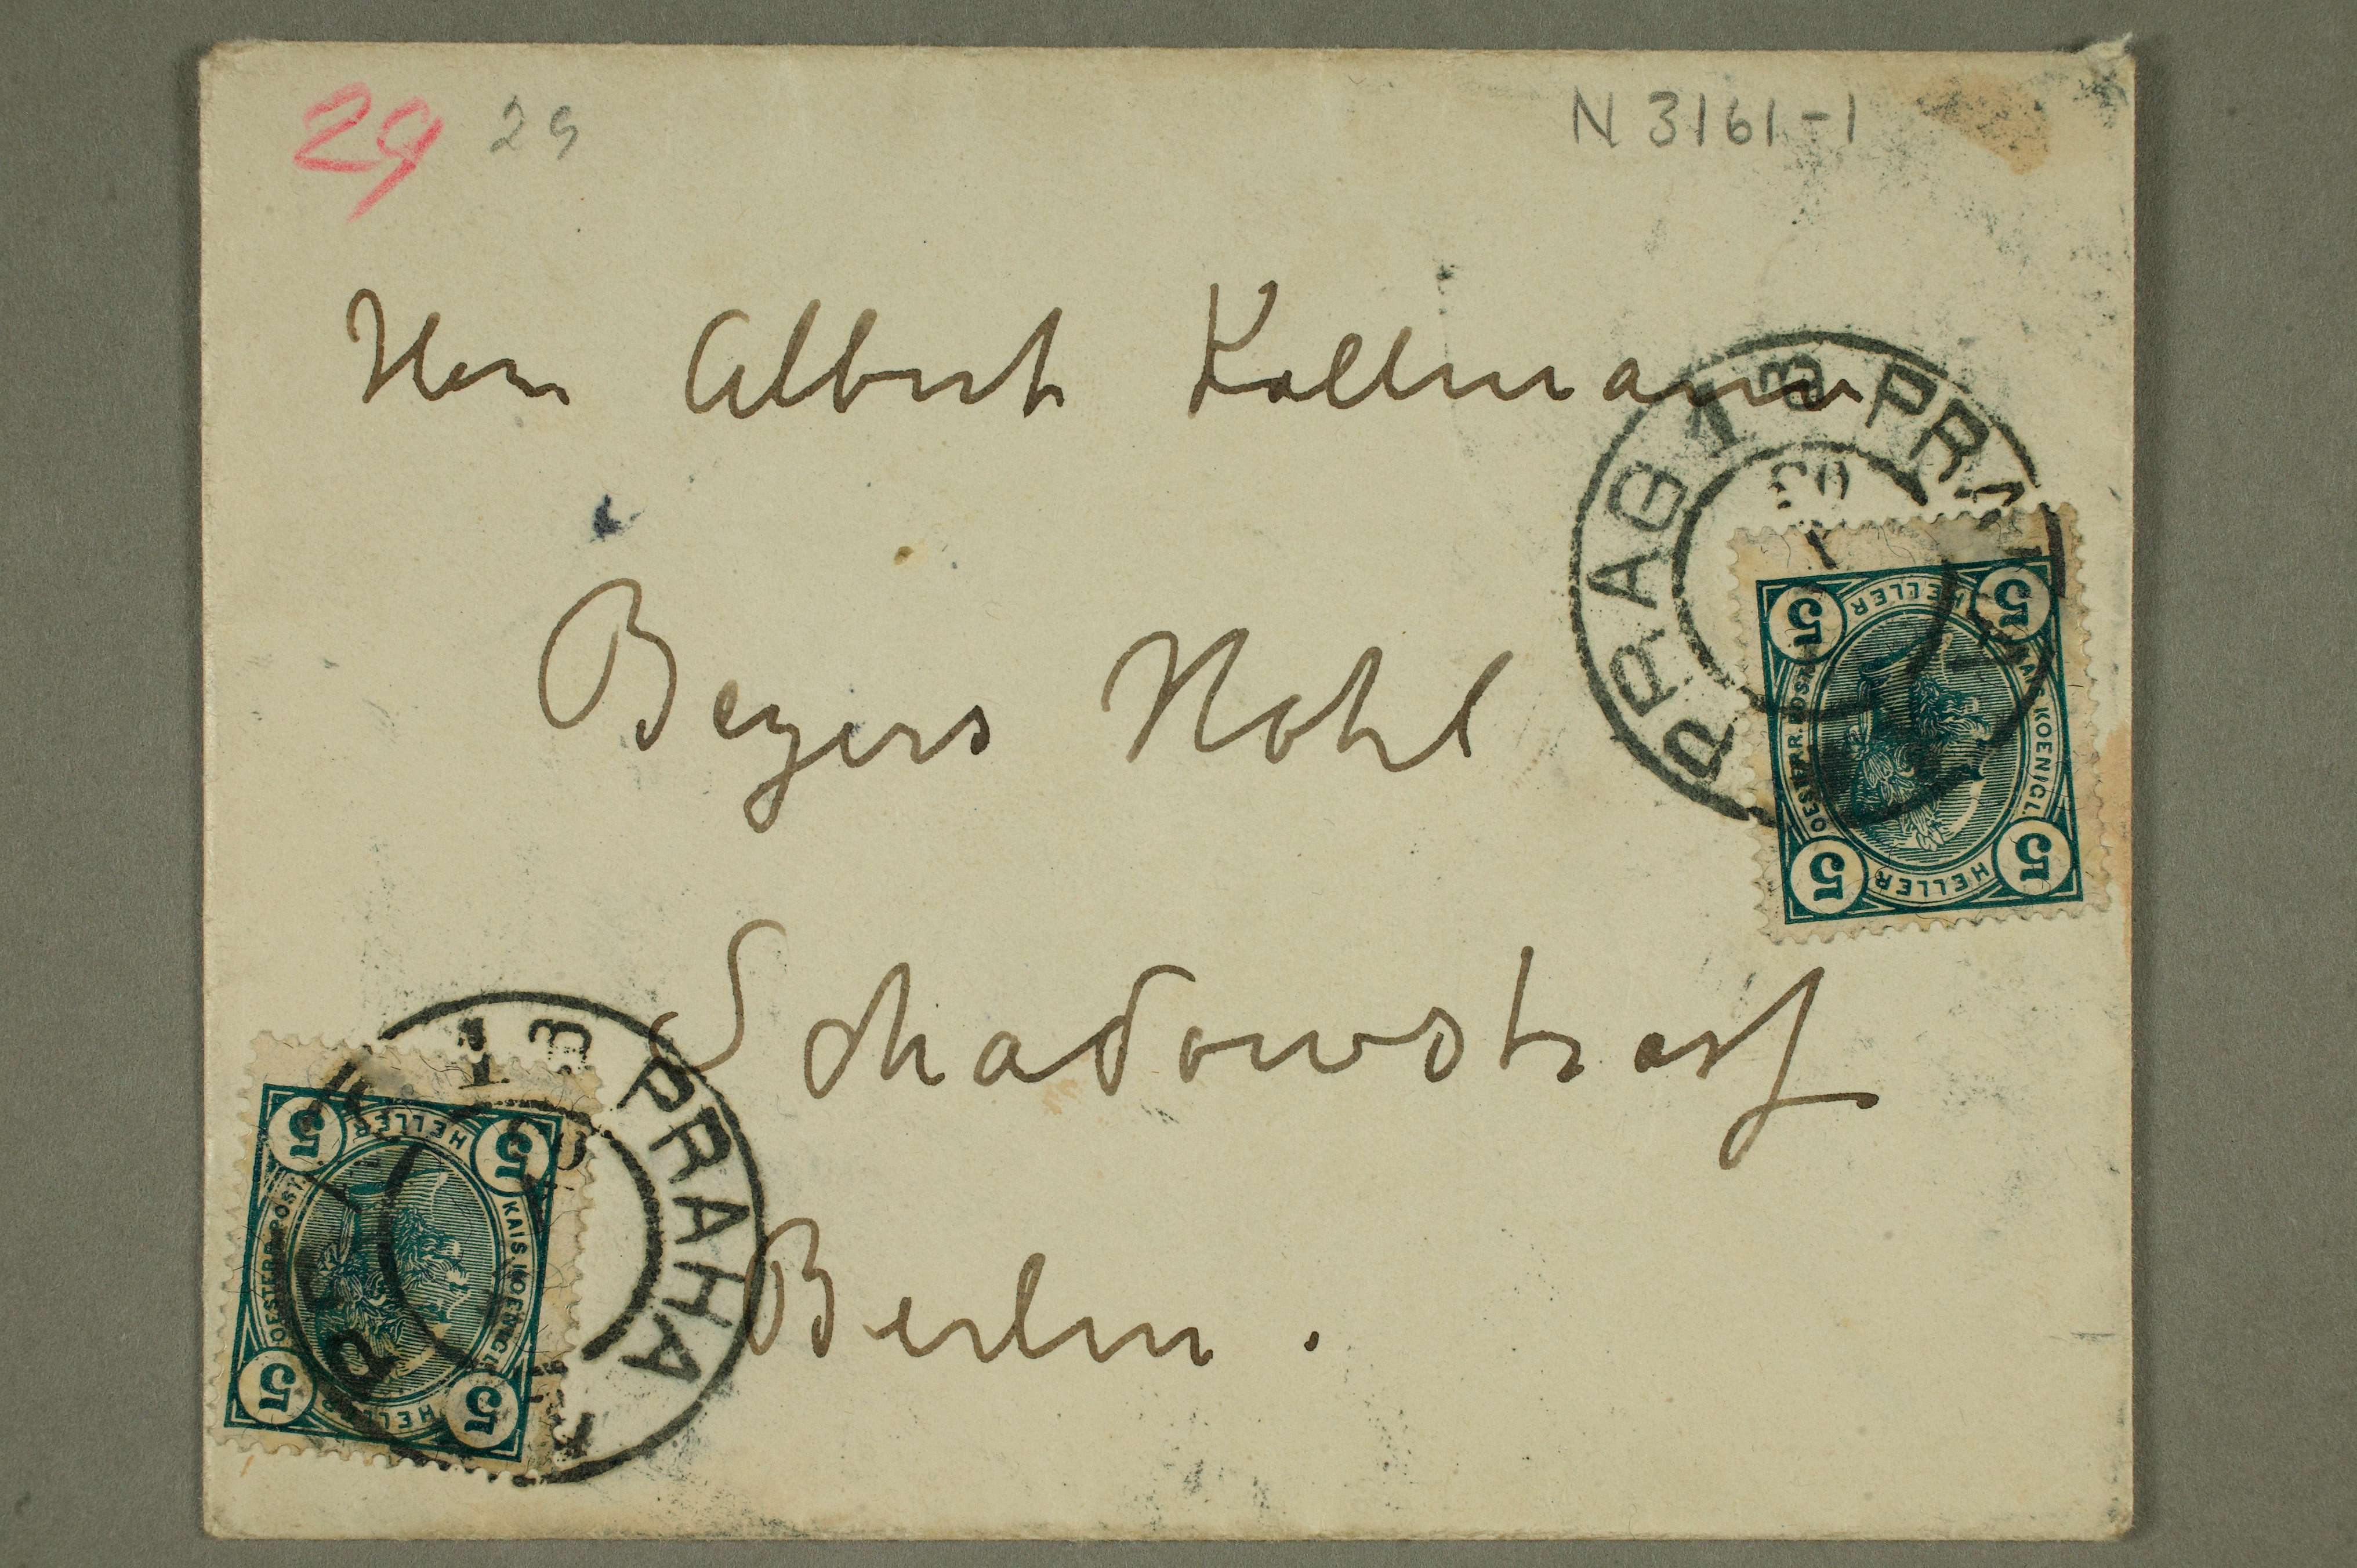 29 29 N 3161-1
Herrn Albert Kollmann
PRAG 1 B PRA
03
Beyers Hotel
5 HELLER 5
KAIS. KOENIGL. OESTERR. POST
5 HELLER 5
Schadowstrasse
1 B PRAHA
5 HELLER 5
KAIS. KOENIGL. OESTERR. POST
5 HELLER 5
Berlin.